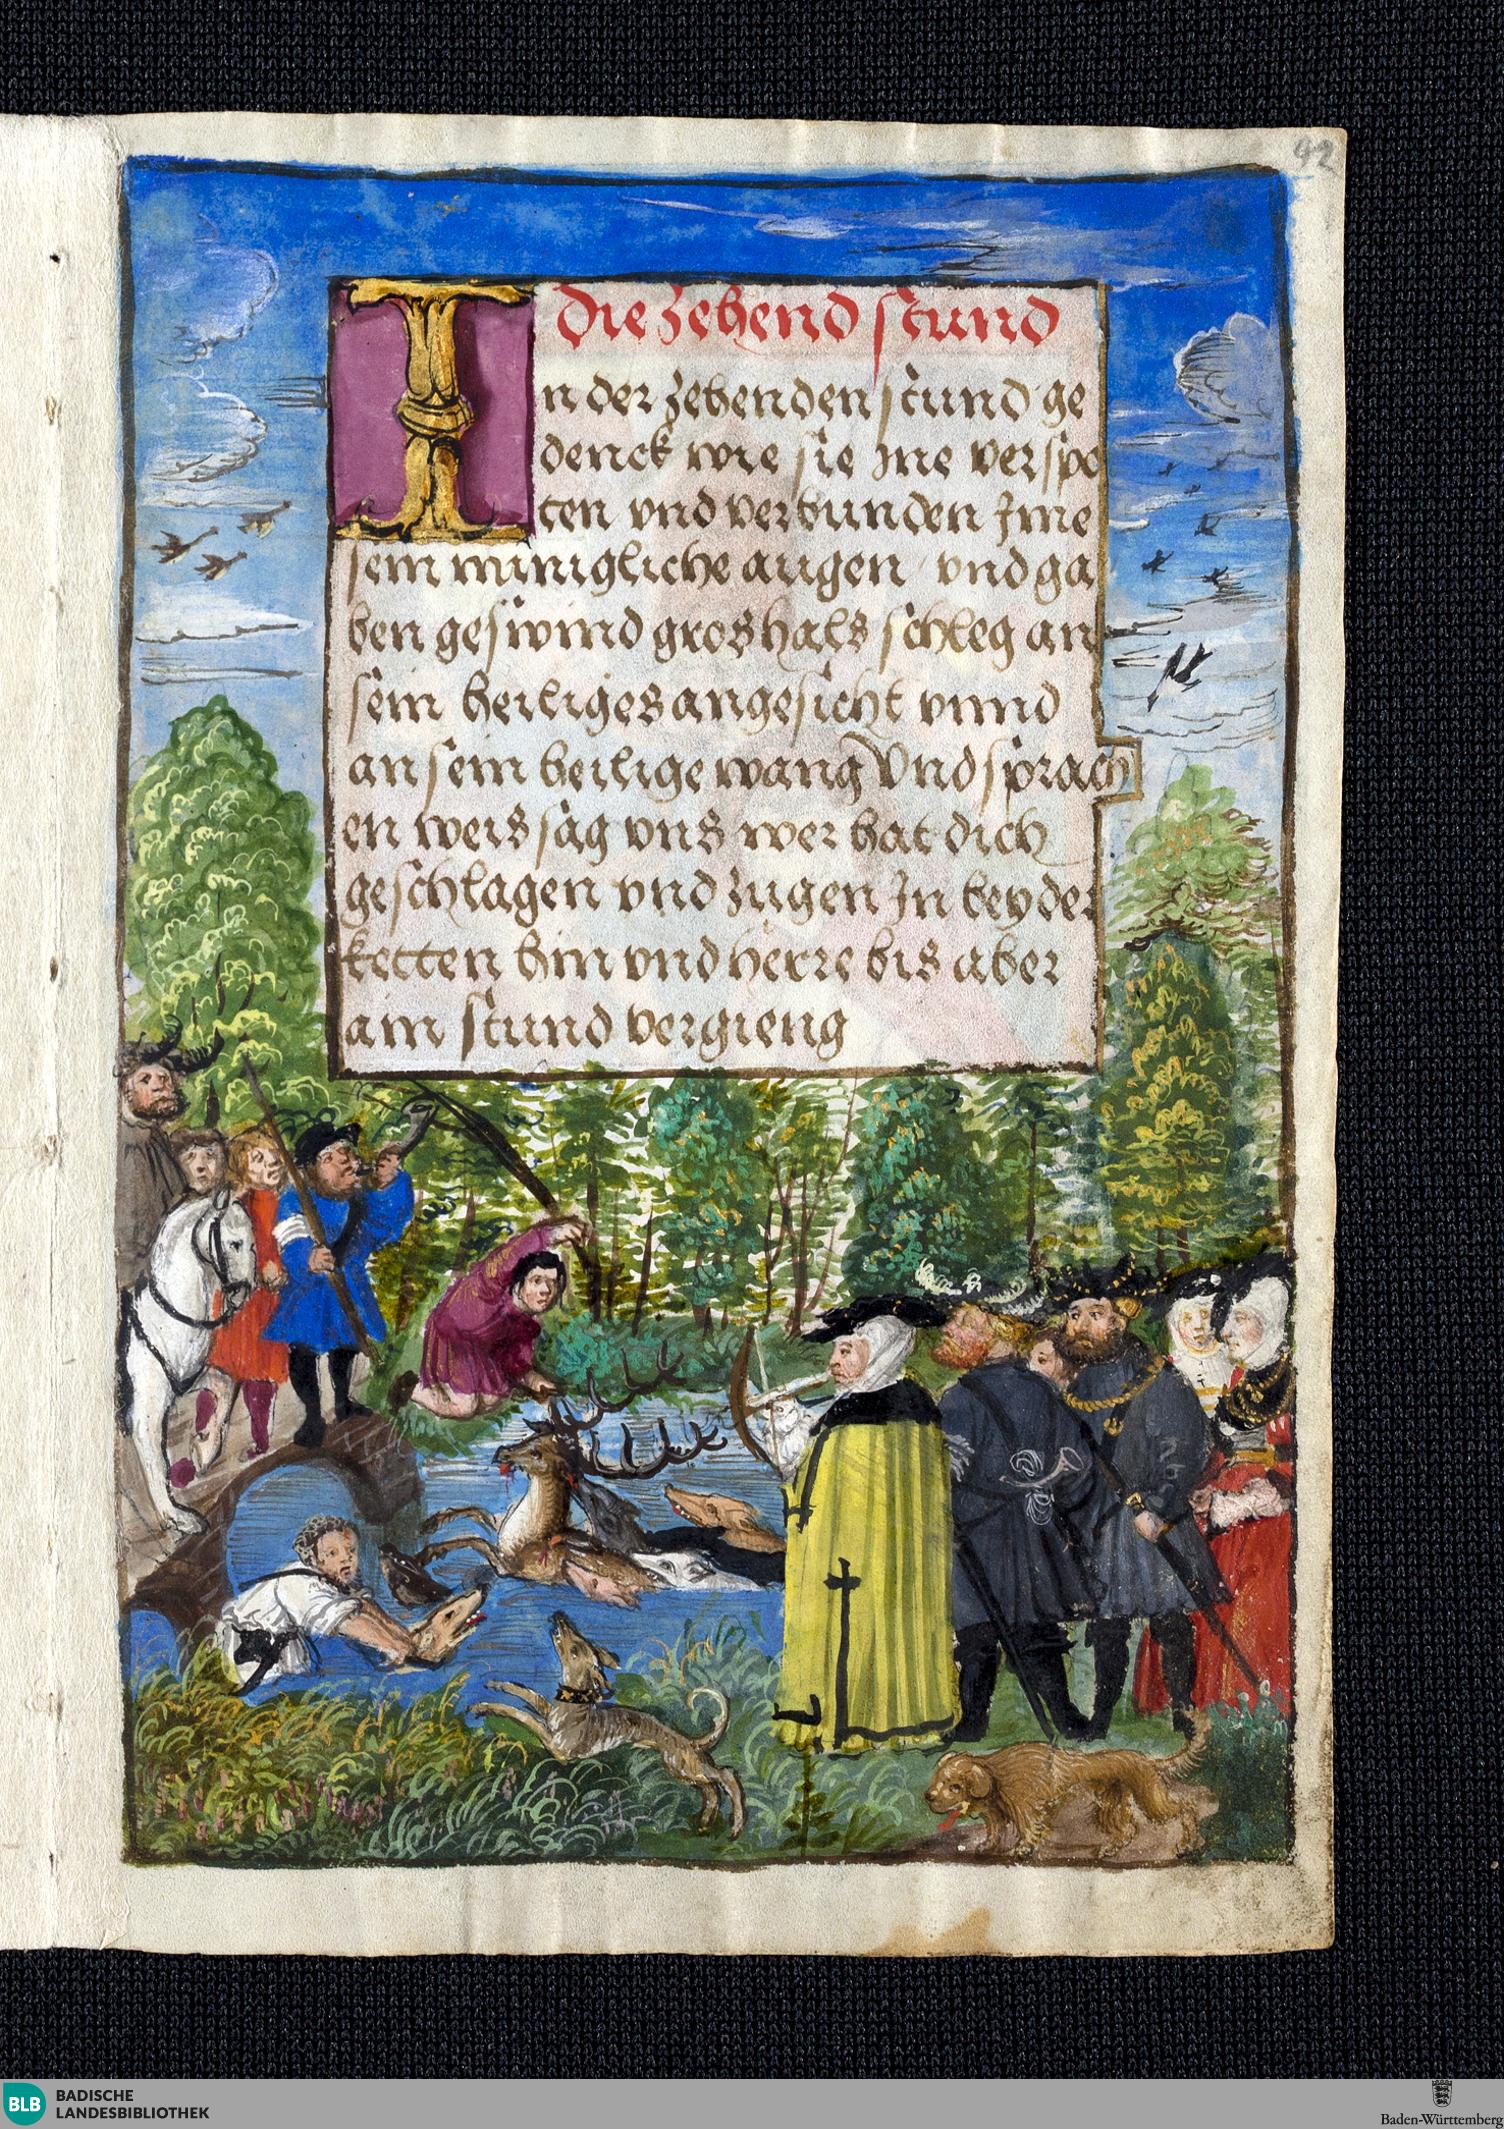 92
Die zehend stund
In der zehenden stund ge
denck wie sie Ine verspo
ten vnd verbunden Ime
sein minigliche augen vnd ga
ben geswind gros hals schleg an
sein heiliges angesicht vnnd
an sein heilige wang Vnd sprach
en weissag vns wer hat dich
geschlagen vnd zugen In bey der
ketten hin vnd herre bis aber
ain stund vergieng
BLB BADISCHE
LANDESBIBLIOTHEK
Baden-Württemberg